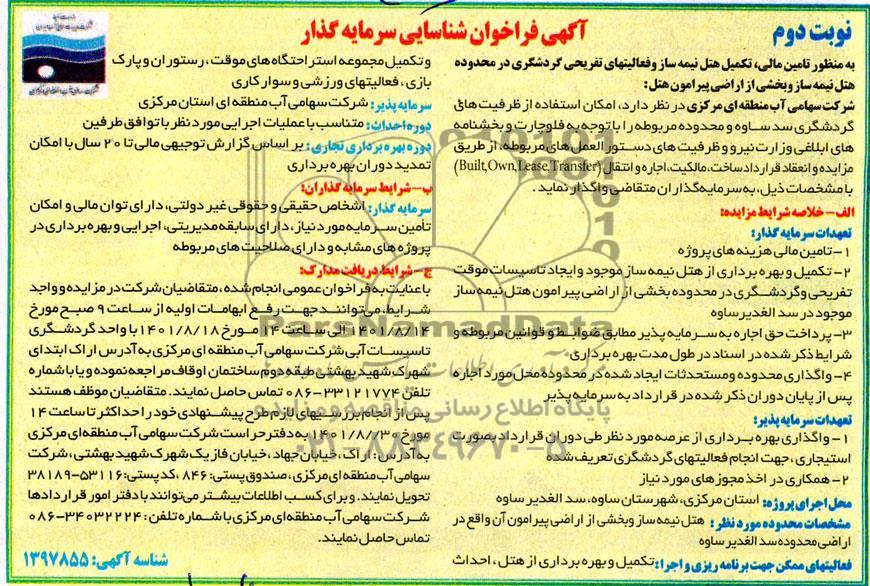 نوبت دوم
آگهی فراخوان شناسایی سرمایه گذار
به منظور تامین مالی، تکمیل هتل نیمه ساز وفعالیتهای تفریحی گردشگری در محدوده
هتل نیمه ساز وبخشی از اراضی پیرامون هتل:
شرکت سهامی آب منطقه ای مرکزی در نظر دارد، امکان استفاده از ظرفیت های
گردشگری سد ساوه و محدوده مربوطه را با توجه به فلوچارت و بخشنامه
های ابلاغی وزارت نیرو و ظرفیت های دستور العمل های مربوطه، از طریق
مزایده و انعقاد قرارداد ساخت، مالکیت، اجاره و انتقال (Built,Own,Lease,Transfer)
با مشخصات ذیل، به سرمایه گذاران متقاضی واگذار نماید.
الف- خلاصه شرایط مزایده:
تعهدات سرمایه گذار:
۱- تامین مالی هزینه های پروژه
۲- تکمیل و بهره برداری از هتل نیمه ساز موجود و ایجاد تاسیسات موقت
تفریحی وگردشگری در محدوده بخشی از اراضی پیرامون هتل نیمه ساز
موجود در سد الغدیر ساوه
۳- پرداخت حق اجاره به سرمایه پذیر مطابق ضوابط و قوانین مربوطه و
شرایط ذکر شده در اسناد در طول مدت بهره برداری
۴- واگذاری محدوده و مستحدثات ایجاد شده در محدوده محل مورد اجاره
پس از پایان دوران ذکر شده در قرارداد به سرمایه پذیر
تعهدات سرمایه پذیر:
۱- واگذاری بهره برداری از عرصه مورد نظر طی دوران قرارداد بصورت
استیجاری، جهت انجام فعالیتهای گردشگری تعریف شده
۲- همکاری در اخذ مجوزهای مورد نیاز
محل اجرای پروژه: استان مرکزی، شهرستان ساوه، سد الغدیر ساوه
مشخصات محدوده مورد نظر: هتل نیمه ساز وبخشی از اراضی پیرامون آن واقع در
اراضی محدوده سد الغدیر ساوه
فعالیتهای ممکن جهت برنامه ریزی و اجرا: تکمیل و بهره برداری از هتل، احداث
و تکمیل مجموعه استراحتگاه های موقت، رستوران و پارک
بازی، فعالیتهای ورزشی و سوارکاری
سرمایه پذیر: شرکت سهامی آب منطقه ای استان مرکزی
دوره احداث: متناسب با عملیات اجرایی مورد نظر با توافق طرفین
دوره بهره برداری تجاری: بر اساس گزارش توجیهی مالی تا ۲۰ سال با امکان
تمدید دوران بهره برداری
ب- شرایط سرمایه گذاران:
سرمایه گذار: اشخاص حقیقی و حقوقی غیر دولتی، دارای توان مالی و امکان
تأمین سرمایه مورد نیاز، دارای سابقه مدیریتی، اجرایی و بهره برداری در
پروژه های مشابه و دارای صلاحیت های مربوطه
ج- شرایط دریافت مدارک:
با عنایت به فراخوان عمومی انجام شده، متقاضیان شرکت در مزایده و واجد
شرایط، می توانند جهت رفع ابهامات اولیه از ساعت ۹ صبح مورخ
۱۴۰۱/۷/۱۴ الی ساعت ۱۴ مورخ ۱۴۰۱/۸/۱۸ با واحد گردشگری
تاسیسات آبی شرکت سهامی آب منطقه ای مرکزی به آدرس اراک ابتدای
شهرک شهید بهشتی طبقه دوم ساختمان اوقاف مراجعه نموده و یا با شماره
تلفن ۳۳۱۲۱۷۷۴-۰۸۶ تماس حاصل نمایند. متقاضیان موظف هستند
پس از انجام بررسیهای لازم طرح پیشنهادی خود را حداکثر تا ساعت ۱۴
مورخ ۱۴۰۱/۸/۳۰ به دفتر حراست شرکت سهامی آب منطقه ای مرکزی
به آدرس: اراک، خیابان جهاد، خیابان فاز یک شهرک شهید بهشتی، شرکت
سهامی آب منطقه ای مرکزی، صندوق پستی: ۸۴۶، کد پستی: ۵۳۱۱۶-۳۸۱۸۹
تحویل نمایند. و برای کسب اطلاعات بیشتر می توانند با دفتر امور قراردادها
شرکت سهامی آب منطقه ای مرکزی با شماره تلفن: ۳۴۰۳۲۲۲۴-۰۸۶
تماس حاصل نمایند.
شناسه آگهی: ۱۳۹۷۸۵۵
ParsNamadData
پایگاه اطلاع رسانی مناقصه و مزایده
۰۲۱-۸۸۳۴۹۶۷۰-۵